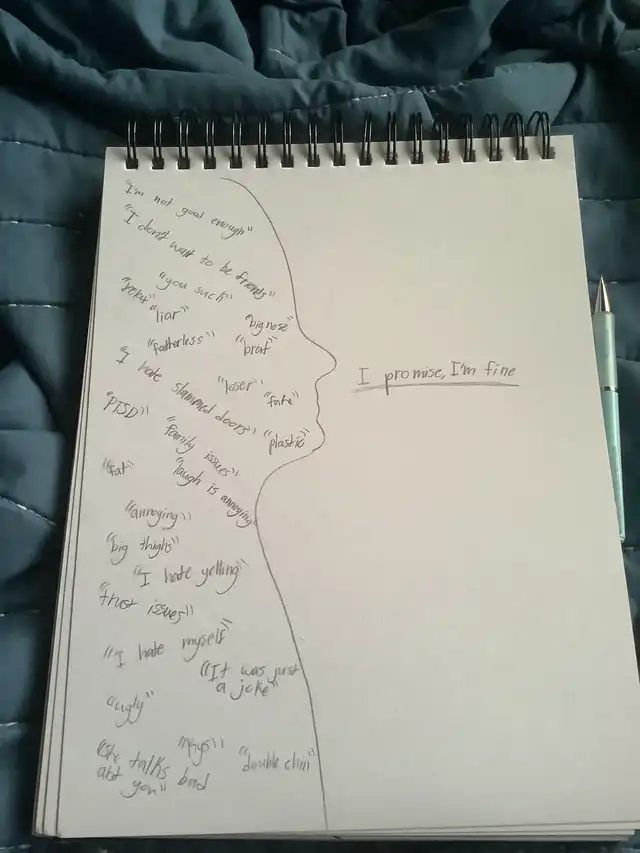 "I'm not good enough"
"I don't want to be friends"
"you suck"
"liar"
"big nose"
"fatherless"
"brat"
"I hate slammed doors"
"loser"
"fake"
"PTSD"
"family issues"
"plastic"
"fat"
"laugh is annoying"
"annoying"
"big thighs"
"I hate yelling"
"trust issues"
"I hate myself"
"It was just
a joke"
"ugly"
"She talks bad
abt you"
"double chin"
I promise, I'm fine